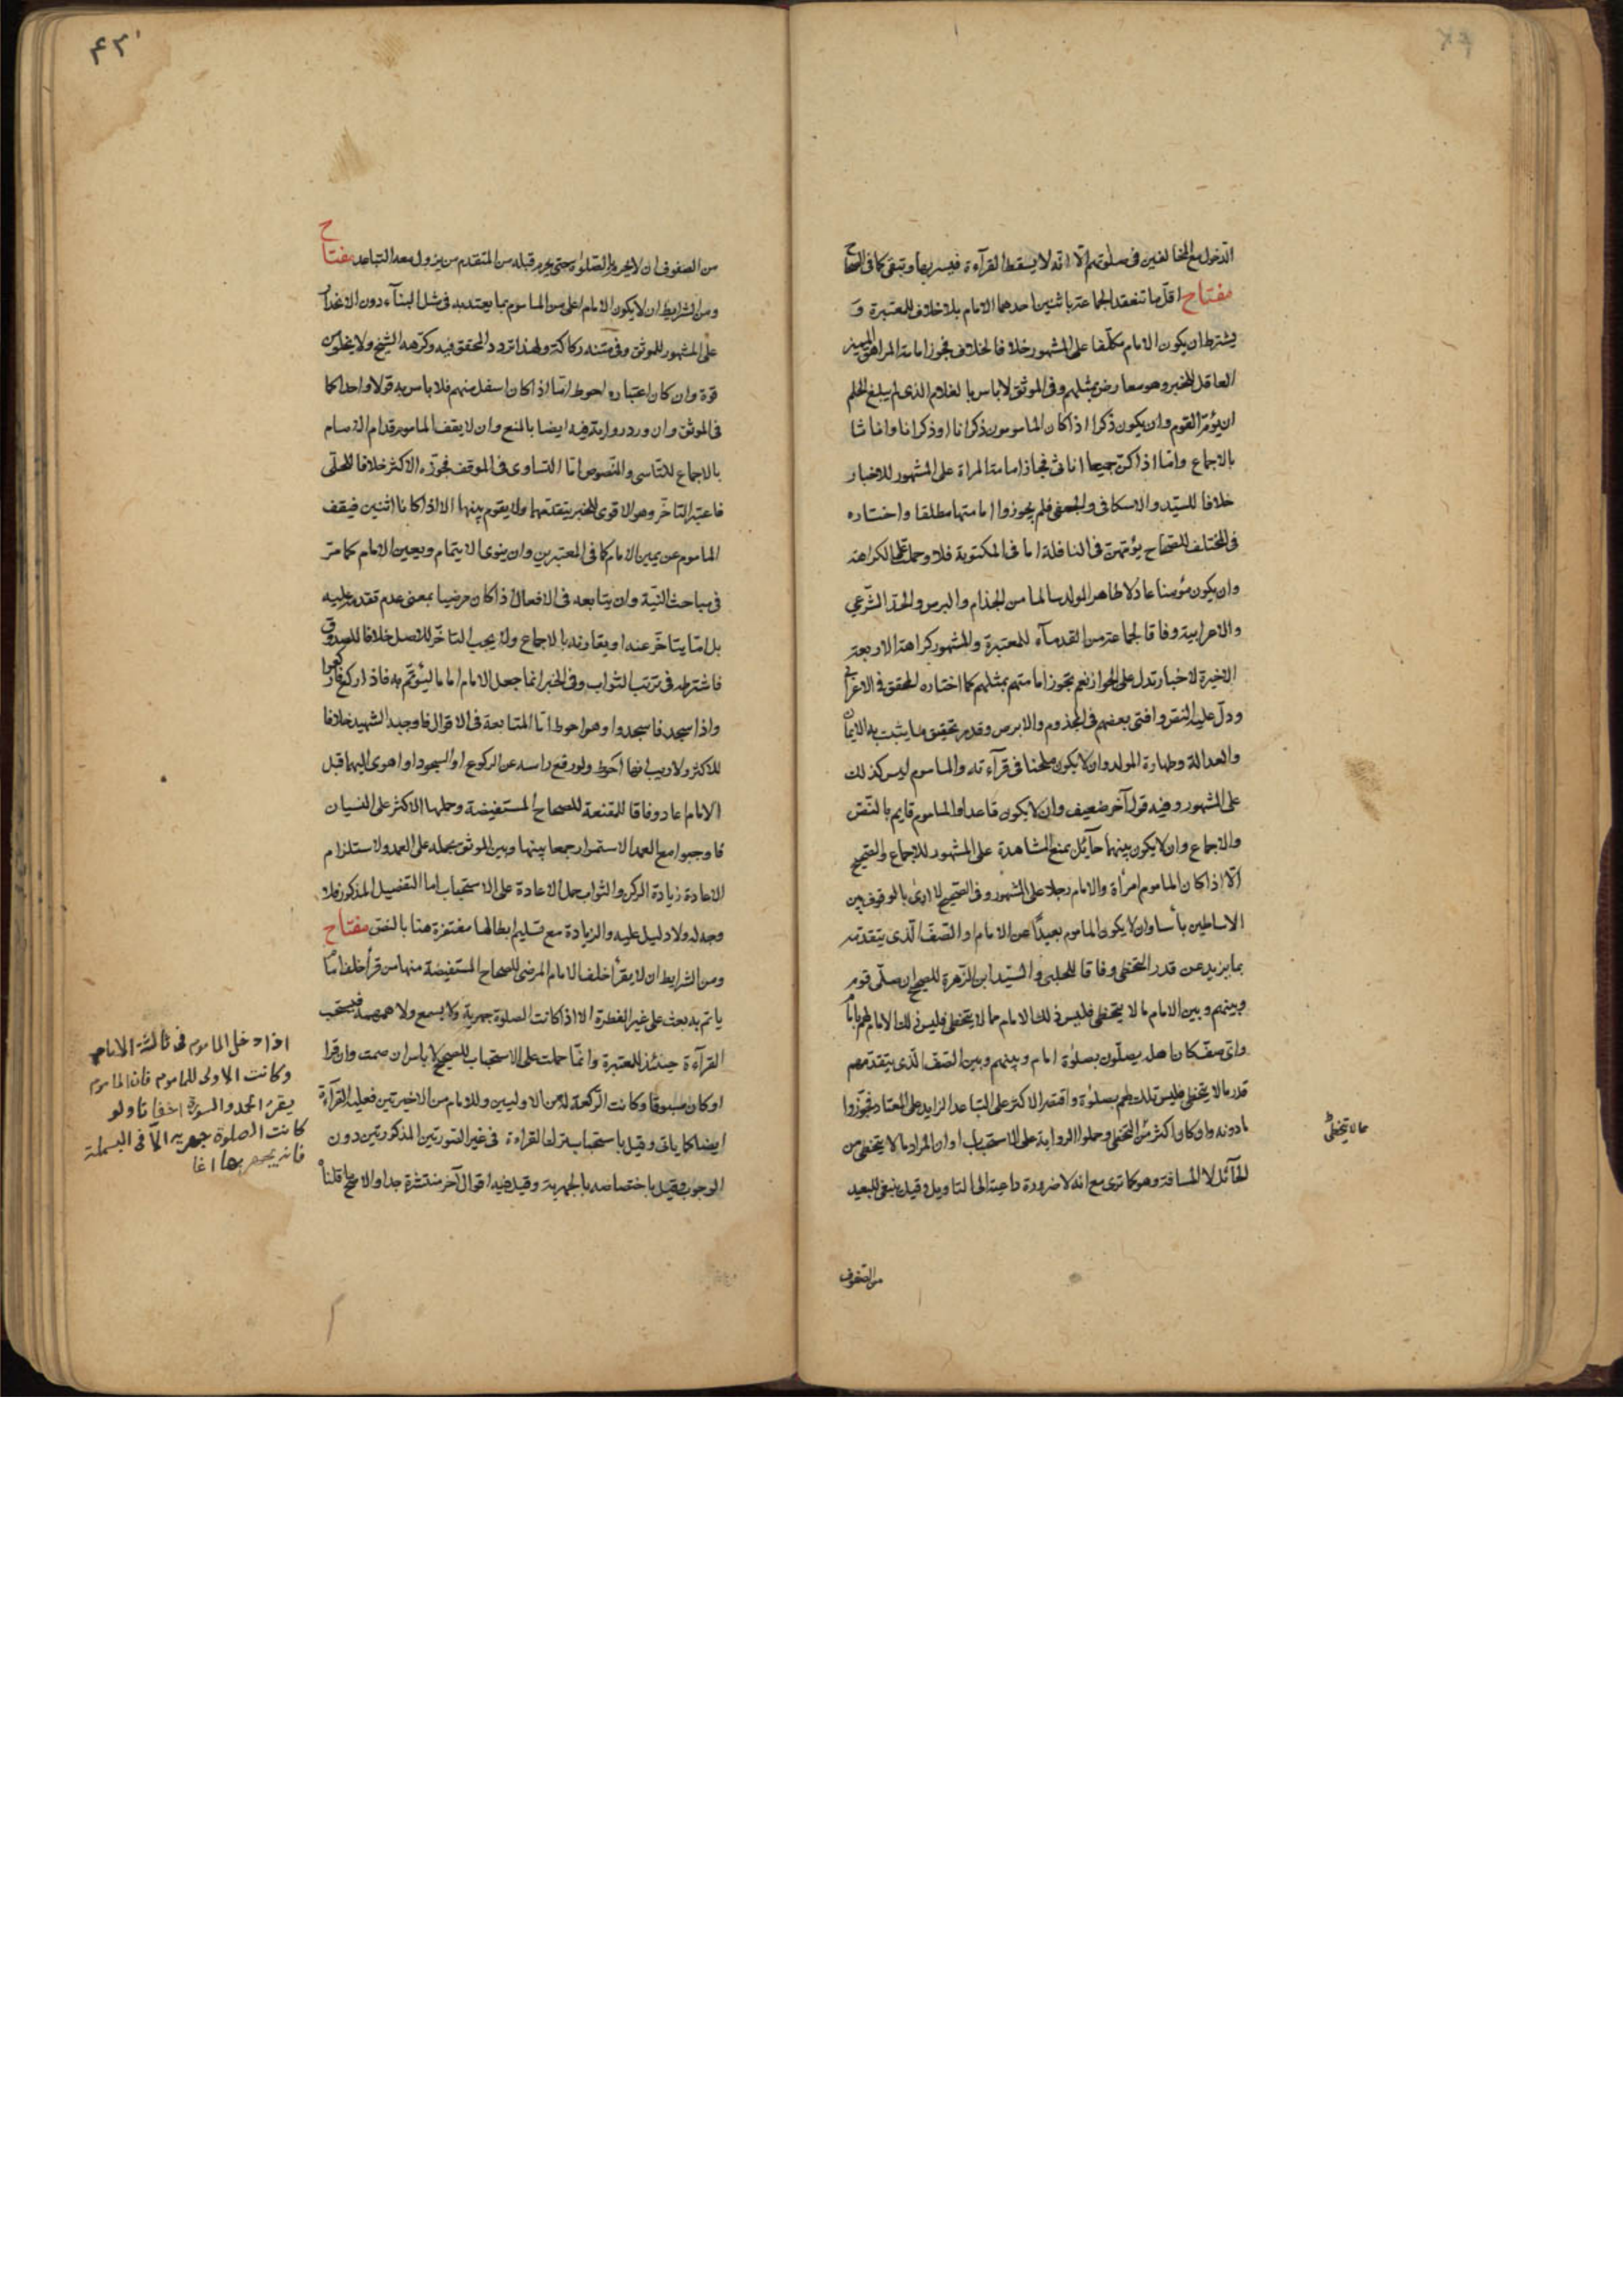 الدخول مع المخالفين فى صلوتهم الا انه لا يسقط القرآءة فيسر بها وتبقى كما فى الصحاح
مفتاح اقل ما تنعقد الجماعة باثنين احدهما الامام بلا خلاف للمعتبرة و
يشترط ان يكون الامام مكلفا على المشهور خلافا للخلاف فجوز امامة المراهق المميز
العاقل للخبر وهو معارض بمثلهم وفى الموثق لا باس بالغلام الذى لم يبلغ الحلم
ان يؤم القوم وان يكون ذكرا اذا كان المامومون ذكرانا او ذكرانا واناثا
بالاجماع واما اذا كن جميعا اناث فجاز امامة المراة على المشهور للاخبار
خلافا للسيد والاسكافى والجعفى فلم يجوزوا امامتها مطلقا واختاره
فى المختلف للصحاح يؤمهن فى النافلة اما فى المكتوبة فلا وحملت على الكراهة
وان يكون مؤمنا عادلا طاهر المولد سالما من الجذام والبرص والحد الشرعي
والاعرابية وفاقا لجماعة من القدمآء للمعتبرة والمشهور كراهة الاربعة
الاخيرة لاخبار تدل على الجواز نعم يجوز امامتهم بمثلهم كما اختاره المحقق فى الاعرابى
ودل عليه النص وافتى بعضهم فى المجذوم والابرص وقد مر تحقيق ما يثبت به الايمان
والعدالة وطهارة المولد وان لا يكون ملحنا فى قرآءته والماموم ليس كذلك
على المشهور وفيه قول آخر ضعيف وان لا يكون قاعدا والماموم قايم بالنص
والاجماع وان لا يكون بينهما حآئل يمنع المشاهدة على المشهور للاجماع والصحيح
الا اذا كان الماموم امرأة والامام رجلا على المشهور وفى الصحيح لا ارى بالوقوف بين
الاساطين بأسا وان لا يكون الماموم بعيدًا عن الامام او الصف الذى يتقدمه
بما يزيد عن قدر التخطى وفاقا للحلبى والسيد ابن الزهرة للصحيح ان صلى قوم
وبينهم وبين الامام ما لا يتخطى فليس ذلك الامام لهم باماما
واى صف كان اهله يصلون بصلوة امام وبينهم وبين الصف الذى يتقدمهم
قدر ما لا يتخطى فليس تلك لهم بصلوة واقتصر الاكثر على التباعد الزايد على المعتاد فجوزوا
ما دونه ولو كان اكثر من التخطى وحملوا الرواية على الاستحباب او ان المراد ما لا يتخطى من
الحآئل لا المسافة وهو كما ترى مع انه لا ضرورة داعية الى التاويل وقيل ينبغى للبعيد
من الصفوف
مما لا يتخطى
من الصفوف ان لا يحرم بالصلوة حتى يحرم قبله من المتقدم من يزول معه التباعد مفتاح
ومن الشرايط ان لا يكون الامام اعلى من الماموم بما يعتد به فى مثل البنآء دون الانحدار
على المشهور للموثق وفى متنه ركاكة ولهذا تردد المحقق فيه وكرهه الشيخ ولا يخلو من
قوة وان كان اعتباره احوط اما اذا كان اسفل منهم فلا باس به قولا واحدا كما
فى الموثق وان ورد رواية فيه ايضا بالمنع وان لا يقف الماموم قدام الامام
بالاجماع للتاسى والنصوص اما التساوى فى الموقف فجوزه الاكثر خلافا للحلى
فاعتبر التاخر وهو الاقوى للخبر يتقدمهما ولا يقوم بينهما الا اذا كانا اثنين فيقف
الماموم عن يمين الامام كما فى المعتبرين وان ينوى الايتمام ويعين الامام كما مر
فى مباحث النية وان يتابعه فى الافعال اذا كان مرضيا بمعنى عدم تقدمه عليه
بل اما يتاخر عنه او يقارنه بالاجماع ولا يجب التاخر للاصل خلافا للصدوق
فاشترطه فى ترتب الثواب وفى الخبر انما جعل الامام اماما ليؤتم به فاذا ركع فاركعوا
واذا سجد فاسجدوا وهو احوط اما المتابعة فى الاقوال فاوجبه الشهيد خلافا
للاكثر ولا ريب انها احوط ولو رفع راسه عن الركوع او السجود او اهوى اليهما قبل
الامام اعاد وفاقا للمقنعة للصحاح المستفيضة وحملها الاكثر على النسيان
فاوجبوا مع العمد الاستمرار جمعا بينها وبين الموثق بحمله على العمد ولاستلزام
الاعادة زيادة الركن والثواب حمل الاعادة على الاستحباب اما التفصيل المذكور فلا
وجه له ولا دليل عليه والزيادة مع تسليم ابطالها مغتفرة هنا بالنص مفتاح
ومن الشرايط ان لا يقرأ خلف الامام المرضى للصحاح المستفيضة منها من قرأ خلف امام
ياتم به بعث على غير الفطرة الا اذا كانت الصلوة جهرية ولا يسمع ولا همهمة فيستحب
القرآءة حينئذ للمعتبرة وانما حملت على الاستحباب للصحيح لا باس ان صمت وان قرا
او كان مسبوقا وكانت الركعة له من الاوليين وللامام من الاخيرتين فعليه القرآءة
ايضا كما ياتى وقيل باستحباب ترك القراءة فى غير الصورتين المذكورتين دون
الوجوب وقيل باختصاصه بالجهرية وقيل فيه اقوال آخر منتشرة جدا والاصح ما قلناه
اذا دخل الماموم فى ثالثة الامام
وكانت الاولى للماموم فان الماموم
يقرء الحمد والسورة اخفاتا ولو
كانت الصلوة جهرية الا فى البسملة
فانه يجهر بها